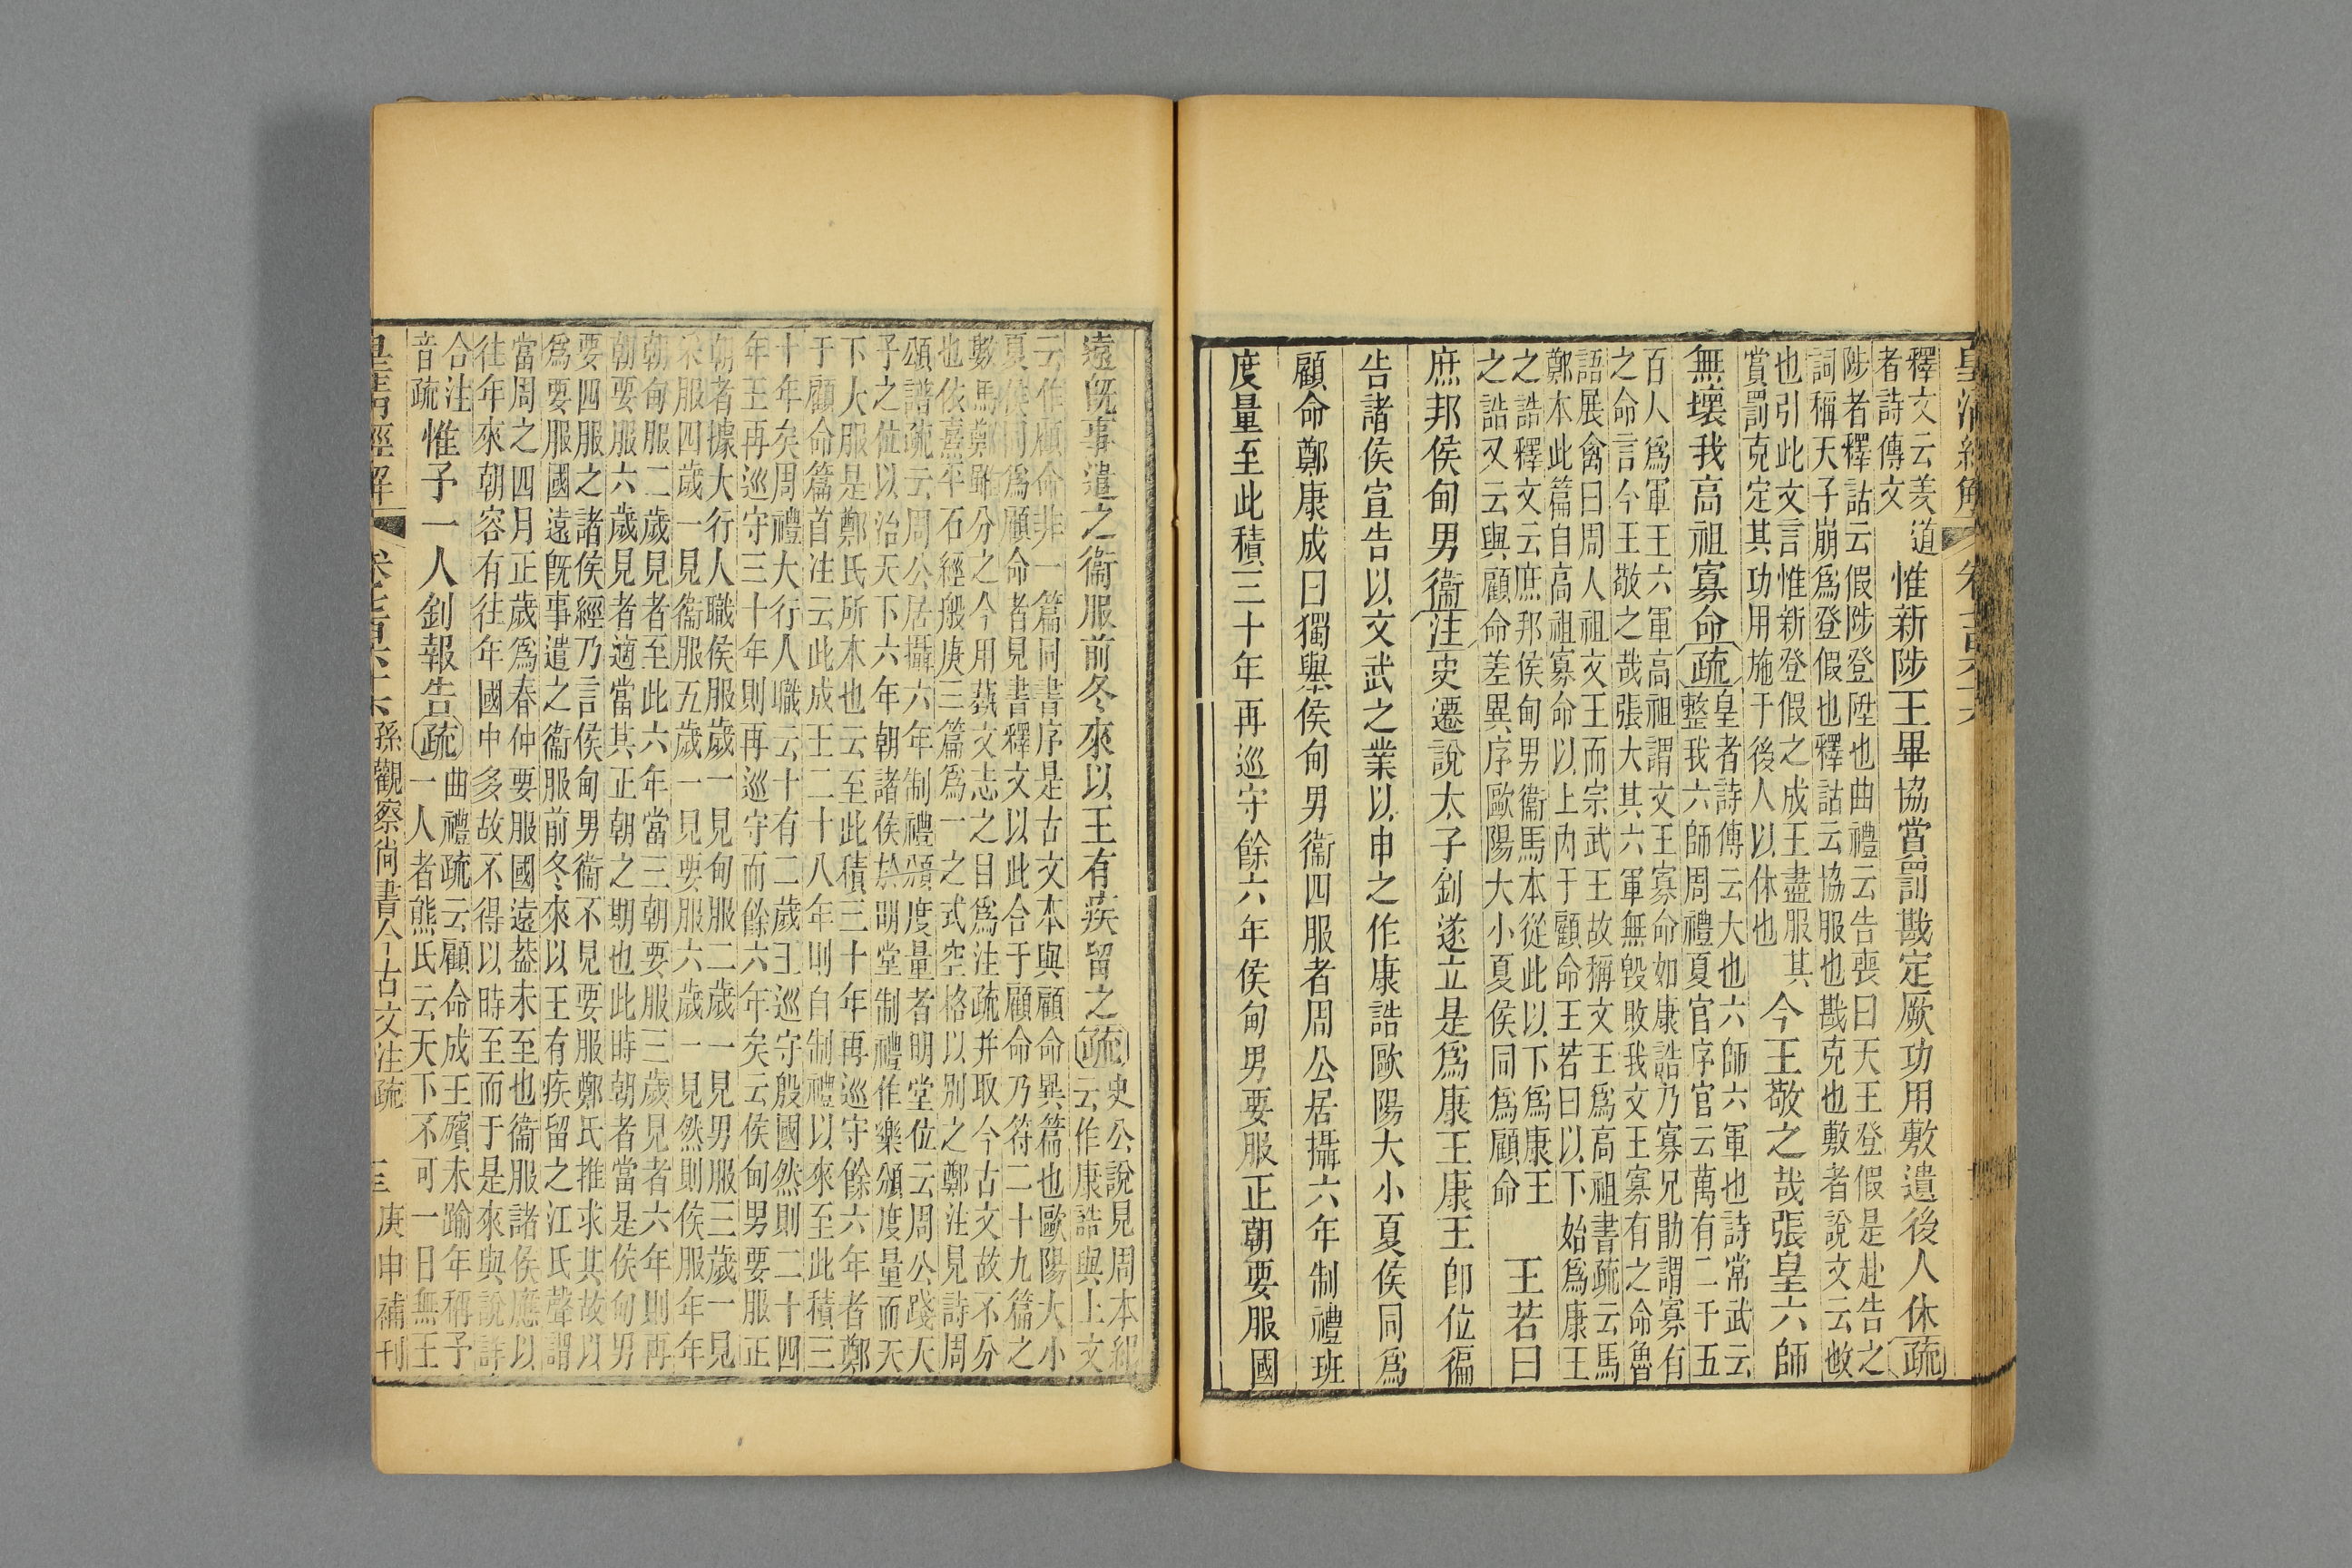 皇清經解
釋文云羑道
者詩傳文
惟新陟王畢協賞罰戡定厥功用敷遺後人休疏
陟者釋詁云假陟登陞也曲禮云告喪曰天王登假是赴告之
詞稱天子崩爲登假也釋詁云協服也戡克也敷者說文云𢻱
也引此文言惟新登假之成王盡服其
賞罰克定其功用施于後人以休也
今王敬之哉張皇六師
無壞我高祖寡命疏
皇者詩傳云大也六師六軍也詩常武云
整我六師周禮夏官序官云萬有二千五
百人爲軍王六軍高祖謂文王寡命如康誥乃寡兄勖謂寡有
之命言今王敬之哉張大其六軍無毀敗我文王寡有之命魯
語展禽曰周人祖文王而宗武王故稱文王爲高祖書疏云馬
鄭本此篇自高祖寡命以上內于顧命王若曰以下始爲康王
之誥釋文云庶邦侯甸男衞馬本從此以下爲康王
之誥又云與顧命差異序歐陽大小夏侯同爲顧命
王若曰
庶邦侯甸男衞注史遷說太子釗遂立是爲康王康王卽位徧
告諸侯宣告以文武之業以申之作康誥歐陽大小夏侯同爲
顧命鄭康成曰獨舉侯甸男衞四服者周公居攝六年制禮班
度量至此積三十年再巡守餘六年侯甸男要服正朝要服國
遠旣事遣之衞服前冬來以王有疾留之疏
史公說見周本紀
云作康誥與上文
云作顧命非一篇同書序是古文本與顧命異篇也歐陽大小
夏侯同爲顧命者見書釋文以此合于顧命乃符二十九篇之
數馬鄭雖分之今用蓺文志之目爲注疏并取今古文故不分
也依熹平石經般庚三篇爲一之式空格以別之鄭注見詩周
頌譜疏云周公居攝六年制禮頒度量者明堂位云周公踐天
子之位以治天下六年朝諸侯於明堂制禮作樂頒度量而天
下大服是鄭氏所本也云至此積三十年再巡守餘六年者鄭
于顧命篇首注云此成王二十八年則自制禮以來至此積三
十年矣周禮大行人職云十有二歲王巡守殷國然則二十四
年王再巡守三十年則再巡守而餘六年矣云侯甸男要服正
朝者據大行人職侯服歲一見甸服二歲一見男服三歲一見
采服四歲一見衞服五歲一見要服六歲一見然則侯服年年
朝甸服二歲見者至此六年當三朝要服三歲見者六年則再
朝要服六歲見者適當其正朝之期也此時朝者當是侯甸男
要四服之諸侯經乃言侯甸男衞不見要服鄭氏推求其故以
爲要服國遠旣事遣之衞服前冬來以王有疾留之江氏聲謂
當周之四月正歲爲春仲要服國遠葢未至也衞服諸侯應以
往年來朝容有往年國中多故不得以時至而于是來與說許
合注
音疏
惟予一人釗報告疏
曲禮疏云顧命成王殯未踰年稱予
一人者熊氏云天下不可一日無王
皇清經解
孫觀察尚書今古文注疏
三
庚申補刊